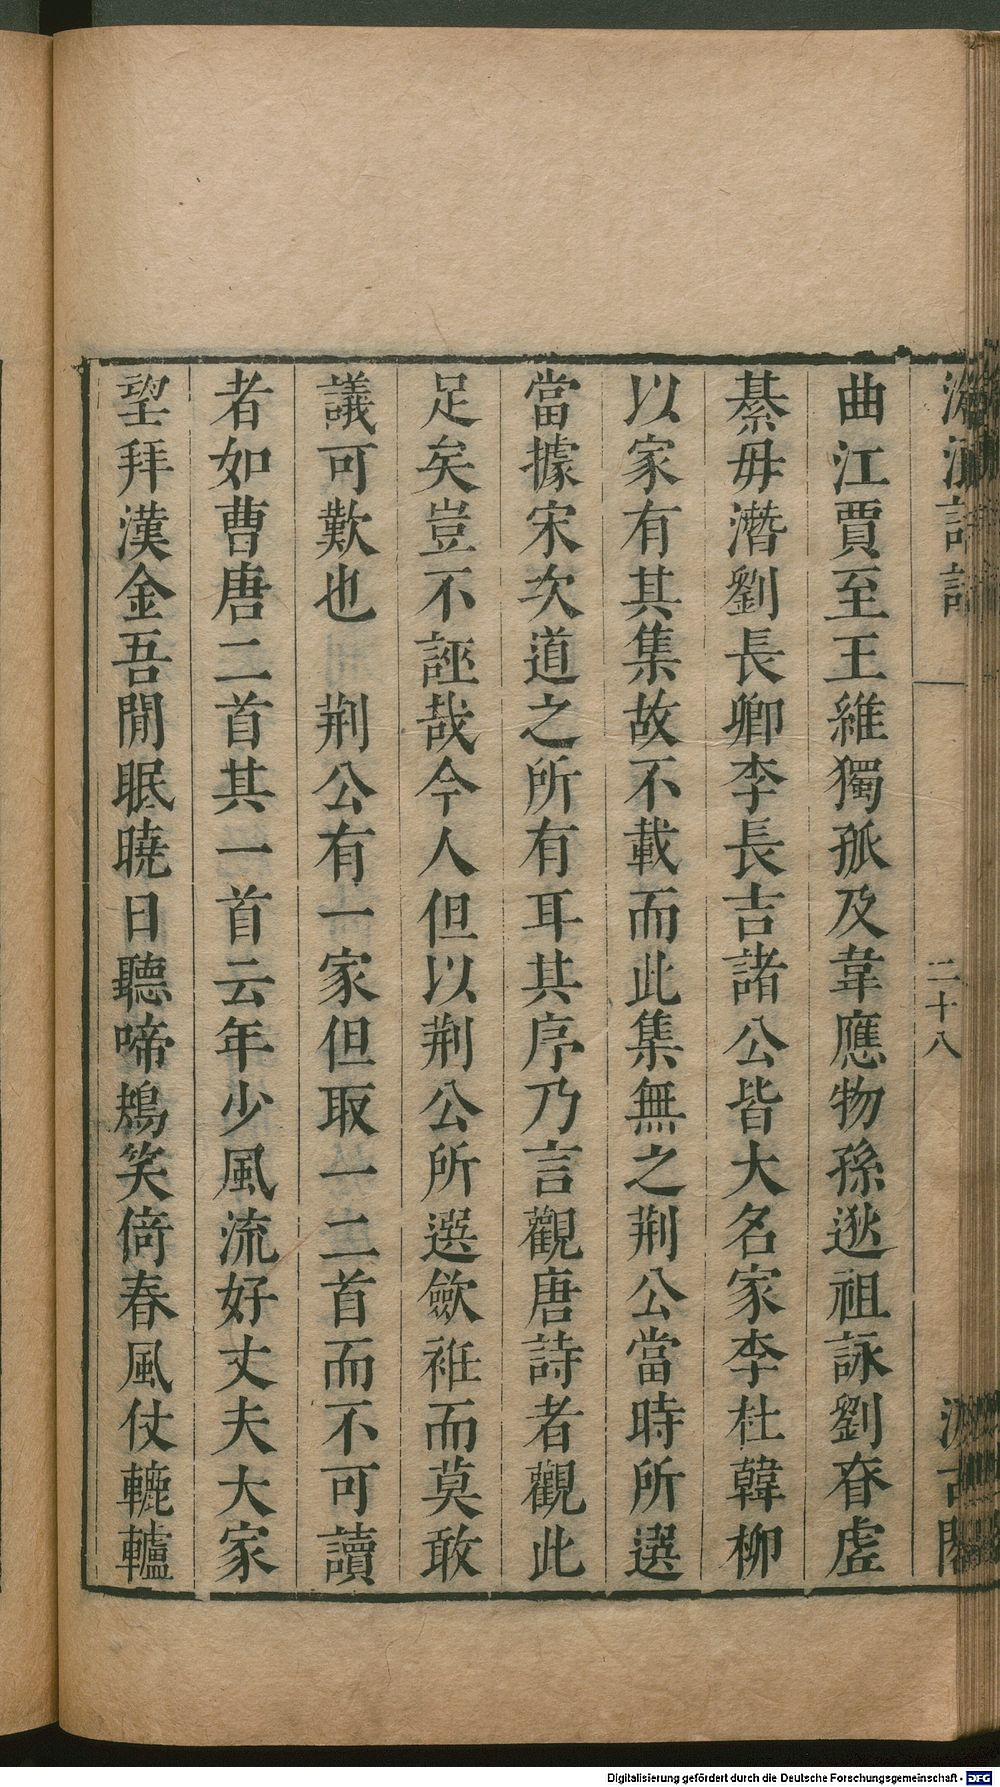 滄浪詩話
二十八
汲古閣
曲江賈至王維獨孤及韋應物孫逖祖詠劉眘虛
綦毋潛劉長卿李長吉諸公皆大名家李杜韓柳
以家有其集故不載而此集無之荆公當時所選
當據宋次道之所有耳其序乃言觀唐詩者觀此
足矣豈不誣哉今人但以荆公所選斂袵而莫敢
議可歎也　荆公有一家但取一二首而不可讀
者如曹唐二首其一首云年少風流好丈夫大家
望拜漢金吾閒眠曉日聽啼鴂笑倚春風仗轆轤
Digitalisierung gefördert durch die Deutsche Forschungsgemeinschaft - DFG